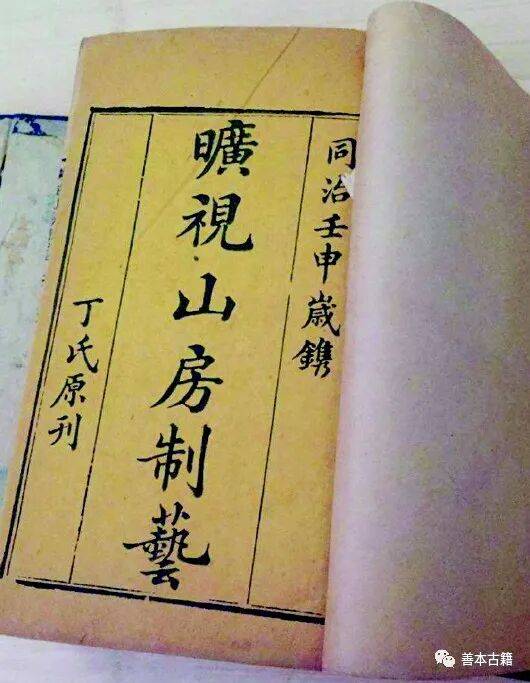 同治壬申歲鐫
曠視山房制藝
丁氏原刊
善本古籍